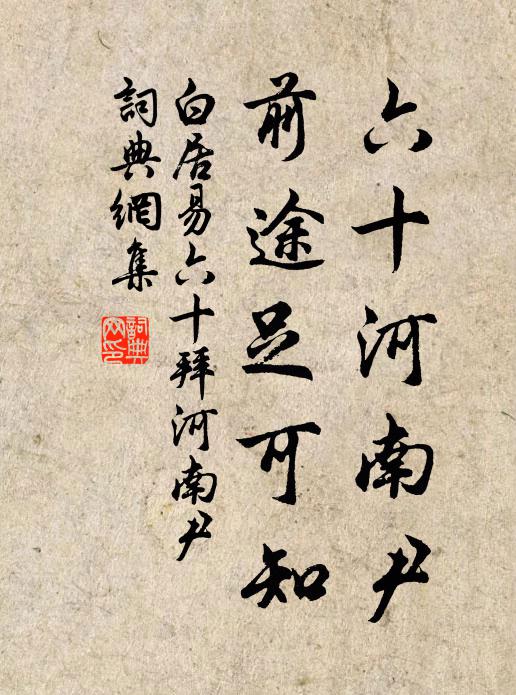 六十河南尹
前途足可知
白居易六十拜河南尹
詞典網集
詞典網印